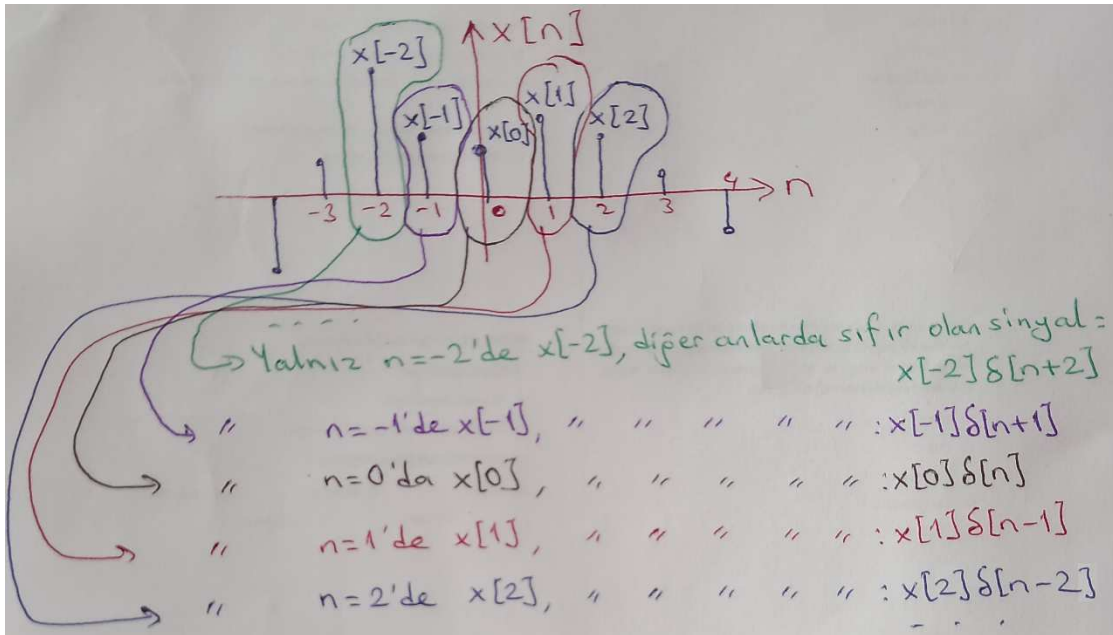 x[n]
x[-2]
x[-1]
x[0]
x[1]
x[2]
-3 -2 -1 0 1 2 3 4 n
Yalnız n=-2'de x[-2], diğer anlarda sıfır olan sinyal:
x[-2]δ[n+2]
" n=-1'de x[-1], " " " " " : x[-1]δ[n+1]
" n=0'da x[0], " " " " " : x[0]δ[n]
" n=1'de x[1], " " " " " : x[1]δ[n-1]
" n=2'de x[2], " " " " " : x[2]δ[n-2]